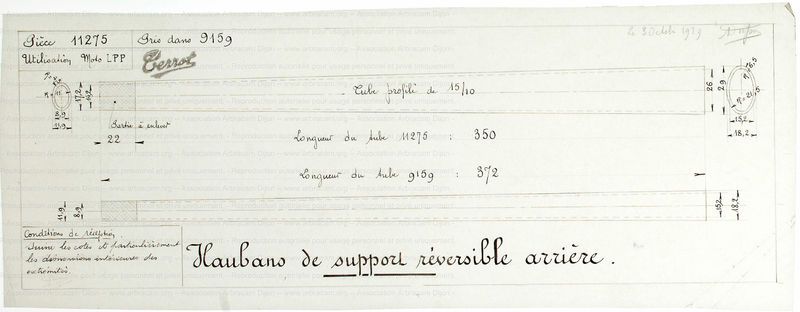 Pièce 11275 Pris dans 9159
Le 3 Octobre 1929
Utilisation Moto LPP
Terrot
Tube profilé de 15/10
Partie à enlever
22
Longueur du tube 11275 : 350
Longueur du tube 9159 : 372
17,2
14,2
26
29
15,2
18,2
11,9
8,9
15,2
18,2
Conditions de réception
Suivre les cotes et particulièrement
les dimensions intérieures des
extrémités.
Haubans de support réversible arrière.